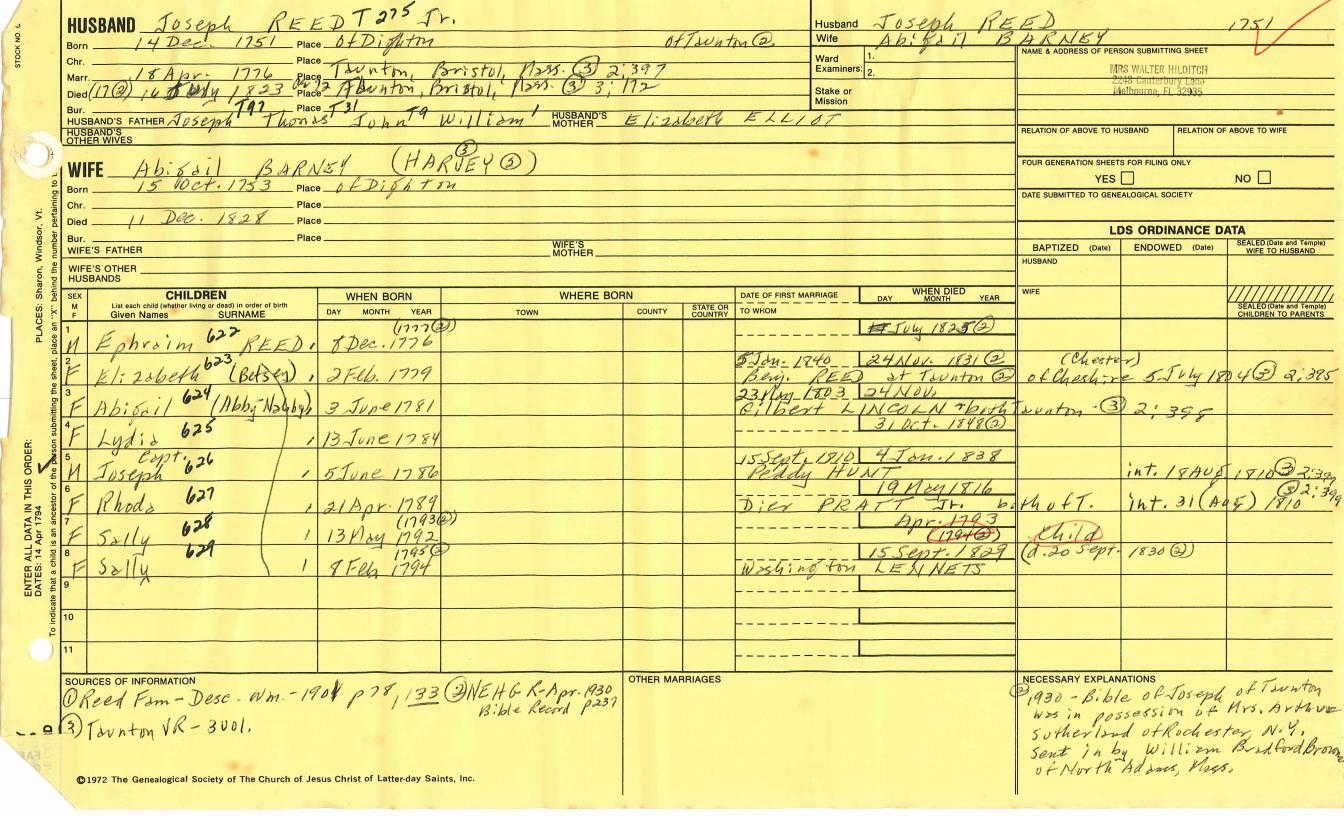 STOCK NO. L
HUSBAND Joseph REED T275 Jr.
Born 14 Dec. 1751 Place of Dighton of Taunton (2)
Chr. Place
Marr. 18 Apr. 1776 Place Taunton, Bristol, Mass. (3) 2:397
Died (17(2)) 16 July 1823 Place Taunton, Bristol, Mass. (3) 3:172
Bur. Place
HUSBAND'S FATHER Joseph T97 Thomas T31 John T9 William' HUSBAND'S MOTHER Elizabeth ELLIOT
HUSBAND'S OTHER WIVES
Husband Joseph REED 1751
Wife Abigail BARNEY
Ward Examiners: 1.
2.
Stake or Mission
NAME & ADDRESS OF PERSON SUBMITTING SHEET
MRS WALTER HILDITCH
2248 Canterbury Lane
Melbourne, FL 32935
RELATION OF ABOVE TO HUSBAND RELATION OF ABOVE TO WIFE
FOUR GENERATION SHEETS FOR FILING ONLY
YES NO
DATE SUBMITTED TO GENEALOGICAL SOCIETY
WIFE Abigail BARNEY (HARVEY (3))
Born 15 Oct. 1753 Place of Dighton
Chr. Place
Died 11 Dec. 1828 Place
Bur. Place
WIFE'S FATHER WIFE'S MOTHER
WIFE'S OTHER HUSBANDS
LDS ORDINANCE DATA
BAPTIZED (Date) ENDOWED (Date) SEALED (Date and Temple) WIFE TO HUSBAND
HUSBAND
WIFE
SEALED (Date and Temple) CHILDREN TO PARENTS
SEX M F
CHILDREN
List each child (whether living or dead) in order of birth
Given Names SURNAME
WHEN BORN
DAY MONTH YEAR
WHERE BORN
TOWN COUNTY STATE OR COUNTRY
DATE OF FIRST MARRIAGE
TO WHOM
WHEN DIED
DAY MONTH YEAR
1 M Ephraim 622 REED 8 Dec. 1776 (1777(2)) July 1825(2)
2 F Elizabeth 623 (Betsey) 2 Feb. 1779 5 Jan. 1840 24 Nov. 1831(2) (Chester)
Benj. REED at Taunton (2) of Cheshire 5 July 1804 (3) 2:395
3 F Abigail 624 (Abby-Nabby) 3 June 1781 23 May 1803 24 Nov.
Gilbert LINCOLN + both Taunton - (3) 2:398
4 F Lydia 625 13 June 1784 31 Oct. 1848(2)
5 M Capt. Joseph 626 5 June 1786 15 Sept. 1810 4 Jan. 1838
Peddy HUNT int. 18 Aug 1810 (3) 2:399
6 F Rhoda 627 21 Apr. 1789 19 May 1816
Dier PRATT Jr. both of T. int. 31 (Aug) 1810 (3) 2:399
7 F Sally 628 13 May 1792 (1793(2)) Apr. 1793 (1794(2)) Child
8 F Sally 629 8 Feb. 1794 1795(2) 15 Sept. 1829 (d. 20 Sept. 1830 (2))
Washington LENNETS
9
10
11
SOURCES OF INFORMATION
(1) Reed Fam - Desc. Wm. - 1901 p 78, 133 (2) NEHG R-Apr. 1930
Bible Record p237
(3) Taunton VR - 3 vol.
OTHER MARRIAGES
NECESSARY EXPLANATIONS
(2) 1930 - Bible of Joseph of Taunton
was in possession of Mrs. Arthur
Sutherland of Rochester, N.Y.
Sent in by William Bradford Brown
of North Adams, Mass.
©1972 The Genealogical Society of The Church of Jesus Christ of Latter-day Saints, Inc.
ENTER ALL DATA IN THIS ORDER:
DATES: 14 Apr 1794
PLACES: Sharon, Windsor, Vt.
To indicate that a child is an ancestor of the person submitting the sheet, place an "X" behind the number pertaining to